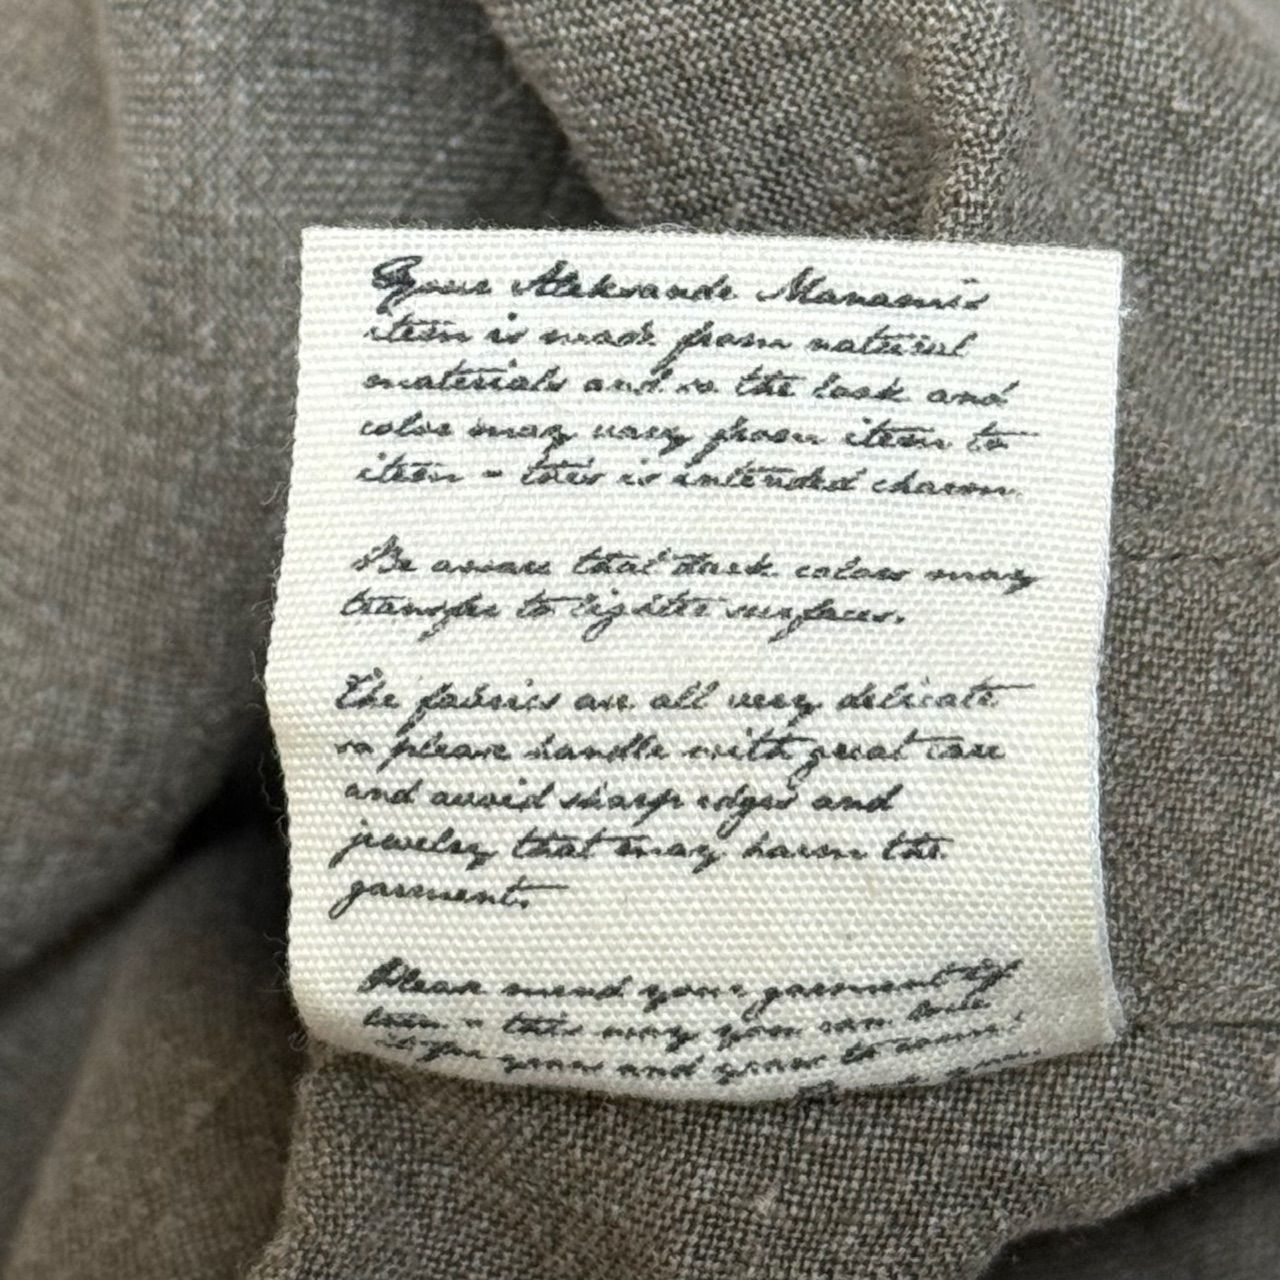 Your Aleksandr Manamïs
item is made from natural
materials and so the look and
color may vary from item to
item - this is intended charm.
Be aware that dark colors may
transfer to lighter surfaces.
The fabrics are all very delicate
so please handle with great care
and avoid sharp edges and
jewelry that may harm the
garment.
Please mend your garment if
torn - this way you can
for years and years to come.